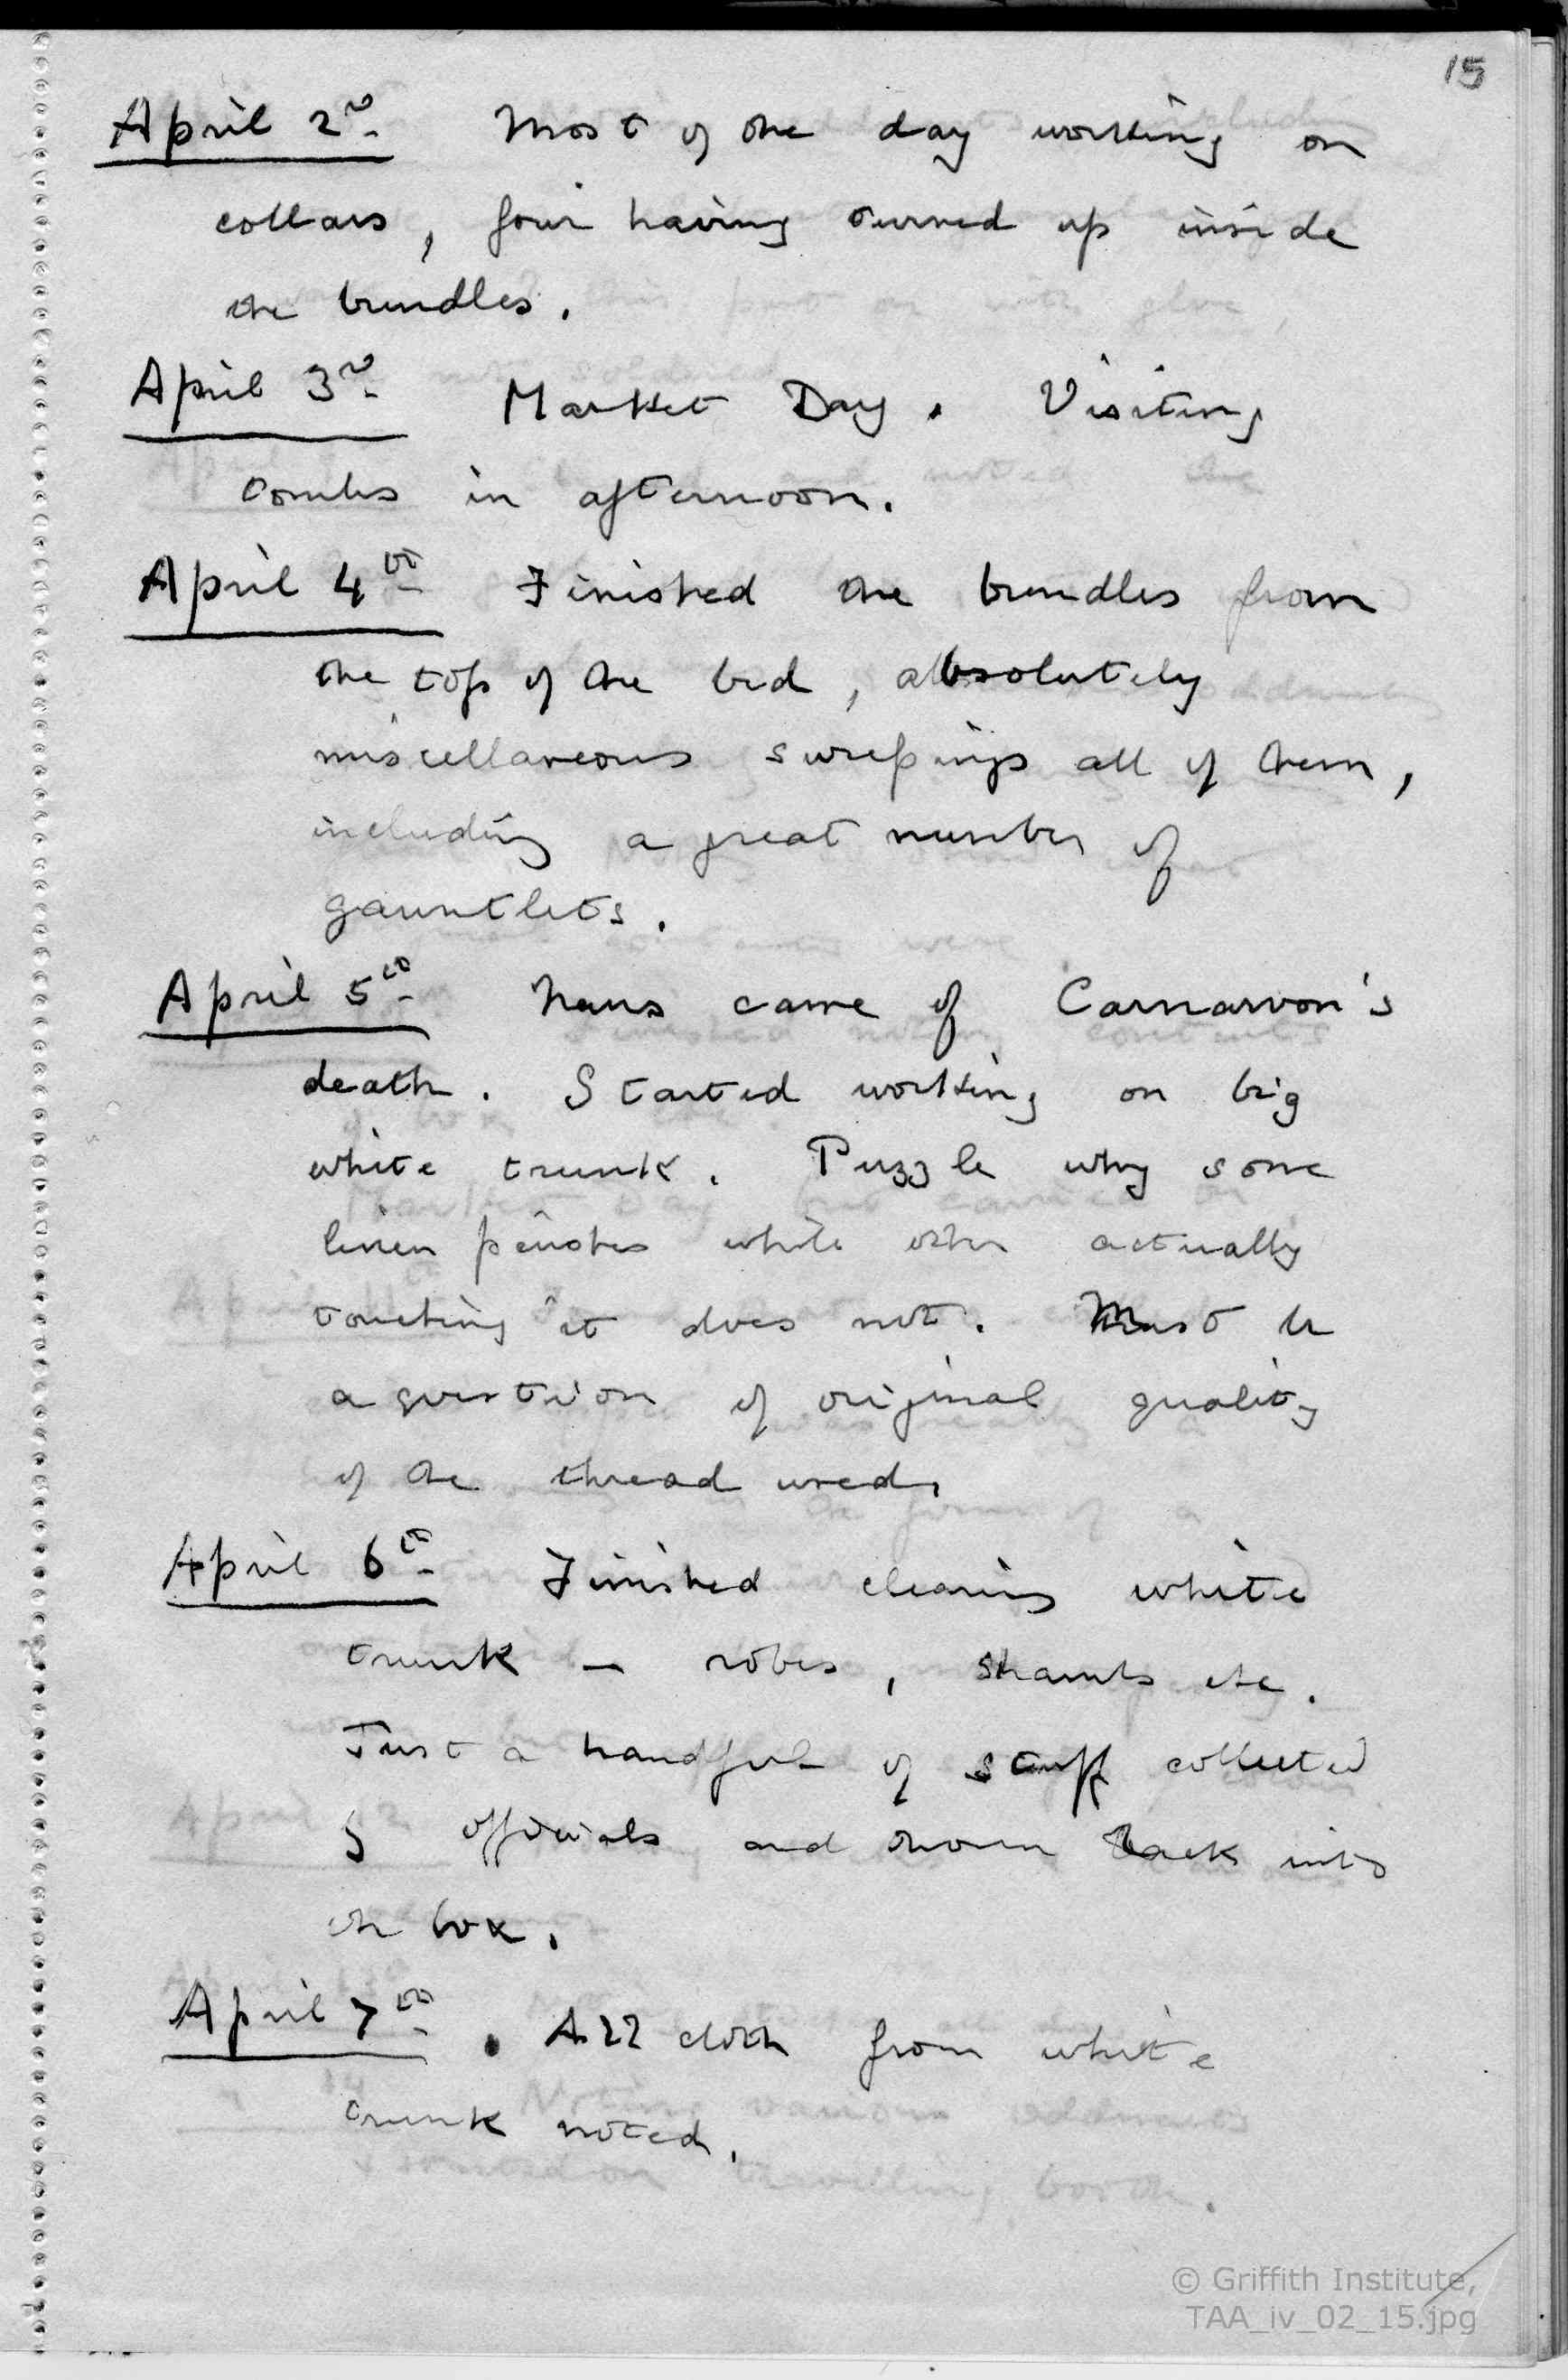 15
April 2nd Most of the day working on
collars, four having turned up inside
the bundles.
April 3rd Market Day. Visiting
tombs in afternoon.
April 4th Finished the bundles from
the top of the bed, absolutely
miscellaneous sweepings all of them,
including a great number of
gauntlets.
April 5th News came of Carnarvon's
death. Started working on big
white trunk. Puzzle why some
linen perishes while other actually
touching it does not. Must be
a question of original quality
of the thread used.
April 6th Finished clearing white
trunk – robes, shawls etc.
Just a handful of stuff collected
by officials and thrown back into
the box.
April 7th. All cloth from white
trunk noted.
© Griffith Institute,
TAA_iv_02_15.jpg